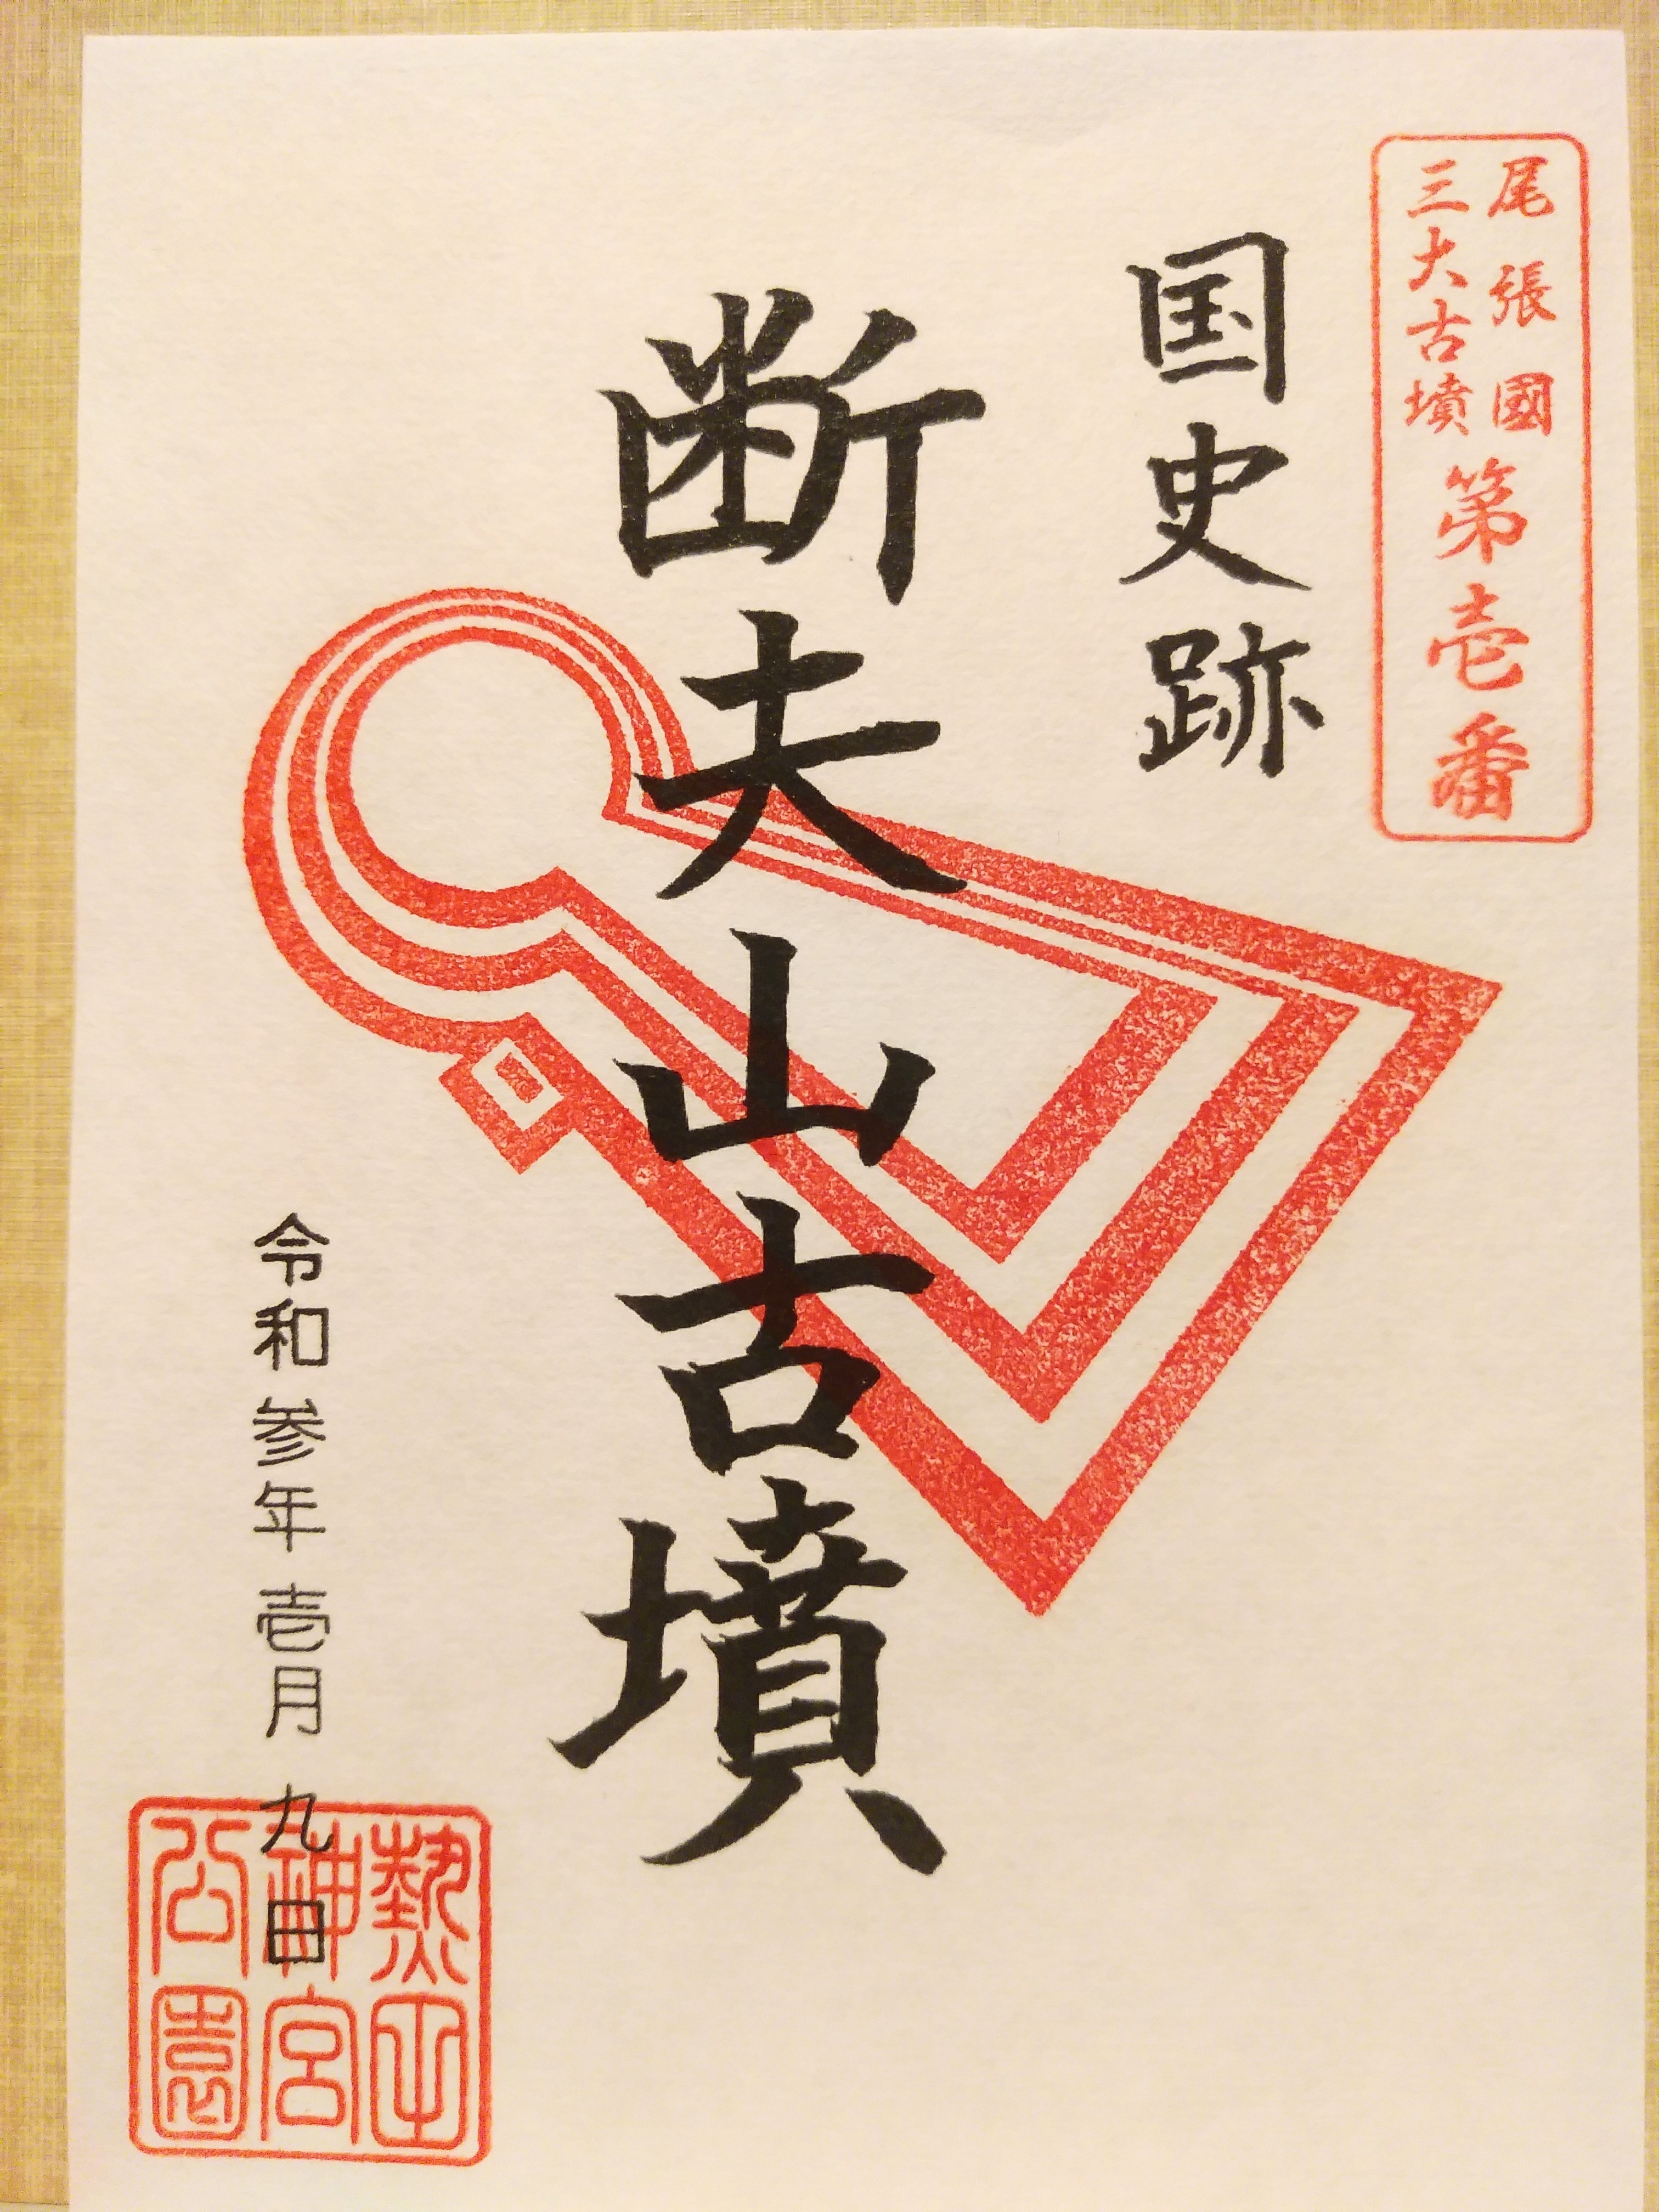 尾張國
三大古墳
第壱番
国史跡
断夫山古墳
令和参年壱月九日
熱田
神宮
公園